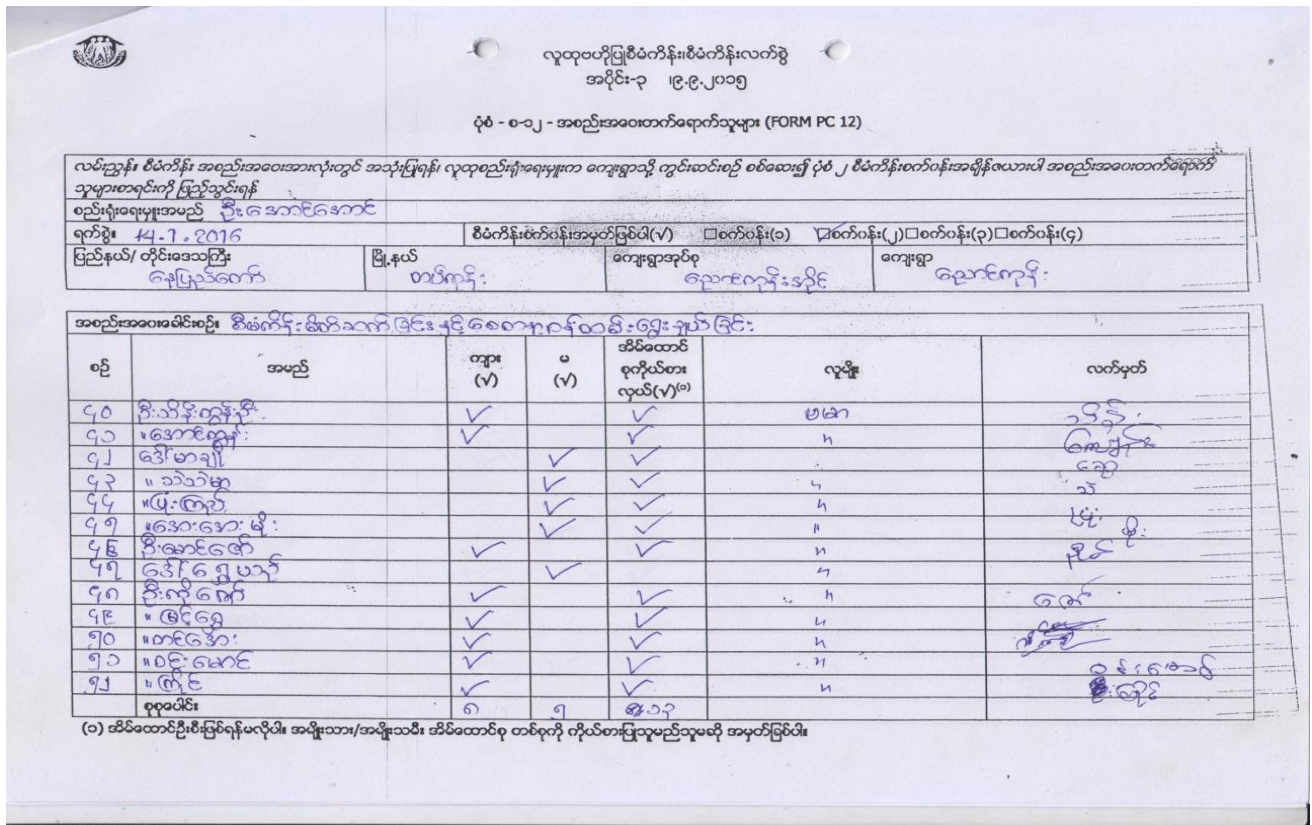 လူထုဗဟိုပြုစီမံကိန်း၊စီမံကိန်းလက်စွဲ
အပိုင်း-၃ ၊၉.၉.၂၀၁၅
ပုံစံ - စ-၁၂ - အစည်းအဝေးတက်ရောက်သူများ (FORM PC 12)
လမ်းညွှန်။ စီမံကိန်း အစည်းအဝေးအားလုံးတွင် အသုံးပြုရန်၊ လူထုစည်းရုံးရေးမှူးက ကျေးရွာသို့ ကွင်းဆင်းစဉ် စစ်ဆေး၍ ပုံစံ ၂ စီမံကိန်းစက်ဝန်းအချိန်ဇယားပါ အစည်းအဝေးတက်ရောက်
သူများစာရင်းကို ဖြည့်သွင်းရန်
စည်းရုံးရေးမှူးအမည် ဦးအောင်အောင်
ရက်စွဲ။ 14.1.2016 စီမံကိန်းစက်ဝန်းအမှတ်ခြစ်ပါ(√) □စက်ဝန်း(၁) ☑စက်ဝန်း(၂)□စက်ဝန်း(၃)□စက်ဝန်း(၄)
ပြည်နယ်/ တိုင်းဒေသကြီး မြို့နယ် ကျေးရွာအုပ်စု ကျေးရွာ
နေပြည်တော် တပ်ကုန်း ညောင်ကုန်း
အစည်းအဝေးခေါင်းစဉ်။ စီမံကိန်းမိတ်ဆက်ခြင်းနှင့်စေတနာ့ဝန်ထမ်းရွေးချယ်ခြင်း
စဉ် အမည် ကျား (√) မ (√) အိမ်ထောင်စုကိုယ်စားလှယ်(√)⁽¹⁾ လူမျိုး လက်မှတ်
၄၀ ဦးသိန်းထွန်းဦး ✓ ✓ ဗမာ သိန်း
၄၁ "အောင်ထွန်း ✓ ✓ "
၄၂ ဒေါ်မာချို ✓ ✓
၄၃ " သဲသဲမာ ✓ ✓ " သဲ
၄၄ "ပြုံးကြည် ✓ ✓ " ပြုံး
၄၅ "အေးအေးမိုး ✓ ✓ " မိုး
၄၆ ဦးမောင်ဇော် ✓ ✓ "
၄၇ ဒေါ်ရွှေယဉ် ✓ "
၄၈ ဦးကိုဇော် ✓ ✓ " ဇော်
၄၉ " မြင့်ရွှေ ✓ ✓ "
၅၀ "တင်အေး ✓ ✓ "
၅၁ "ဝင်းမောင် ✓ ✓ " ဝင်းမောင်
၅၂ "ကြိုင် ✓ ✓ " ဦးကြိုင်
စုစုပေါင်း ၈ ၅ ၁၃
(၁) အိမ်ထောင်ဦးစီးဖြစ်ရန်မလိုပါ။ အမျိုးသား/အမျိုးသမီး အိမ်ထောင်စု တစ်စုကို ကိုယ်စားပြုသူမည်သူမဆို အမှတ်ခြစ်ပါ။